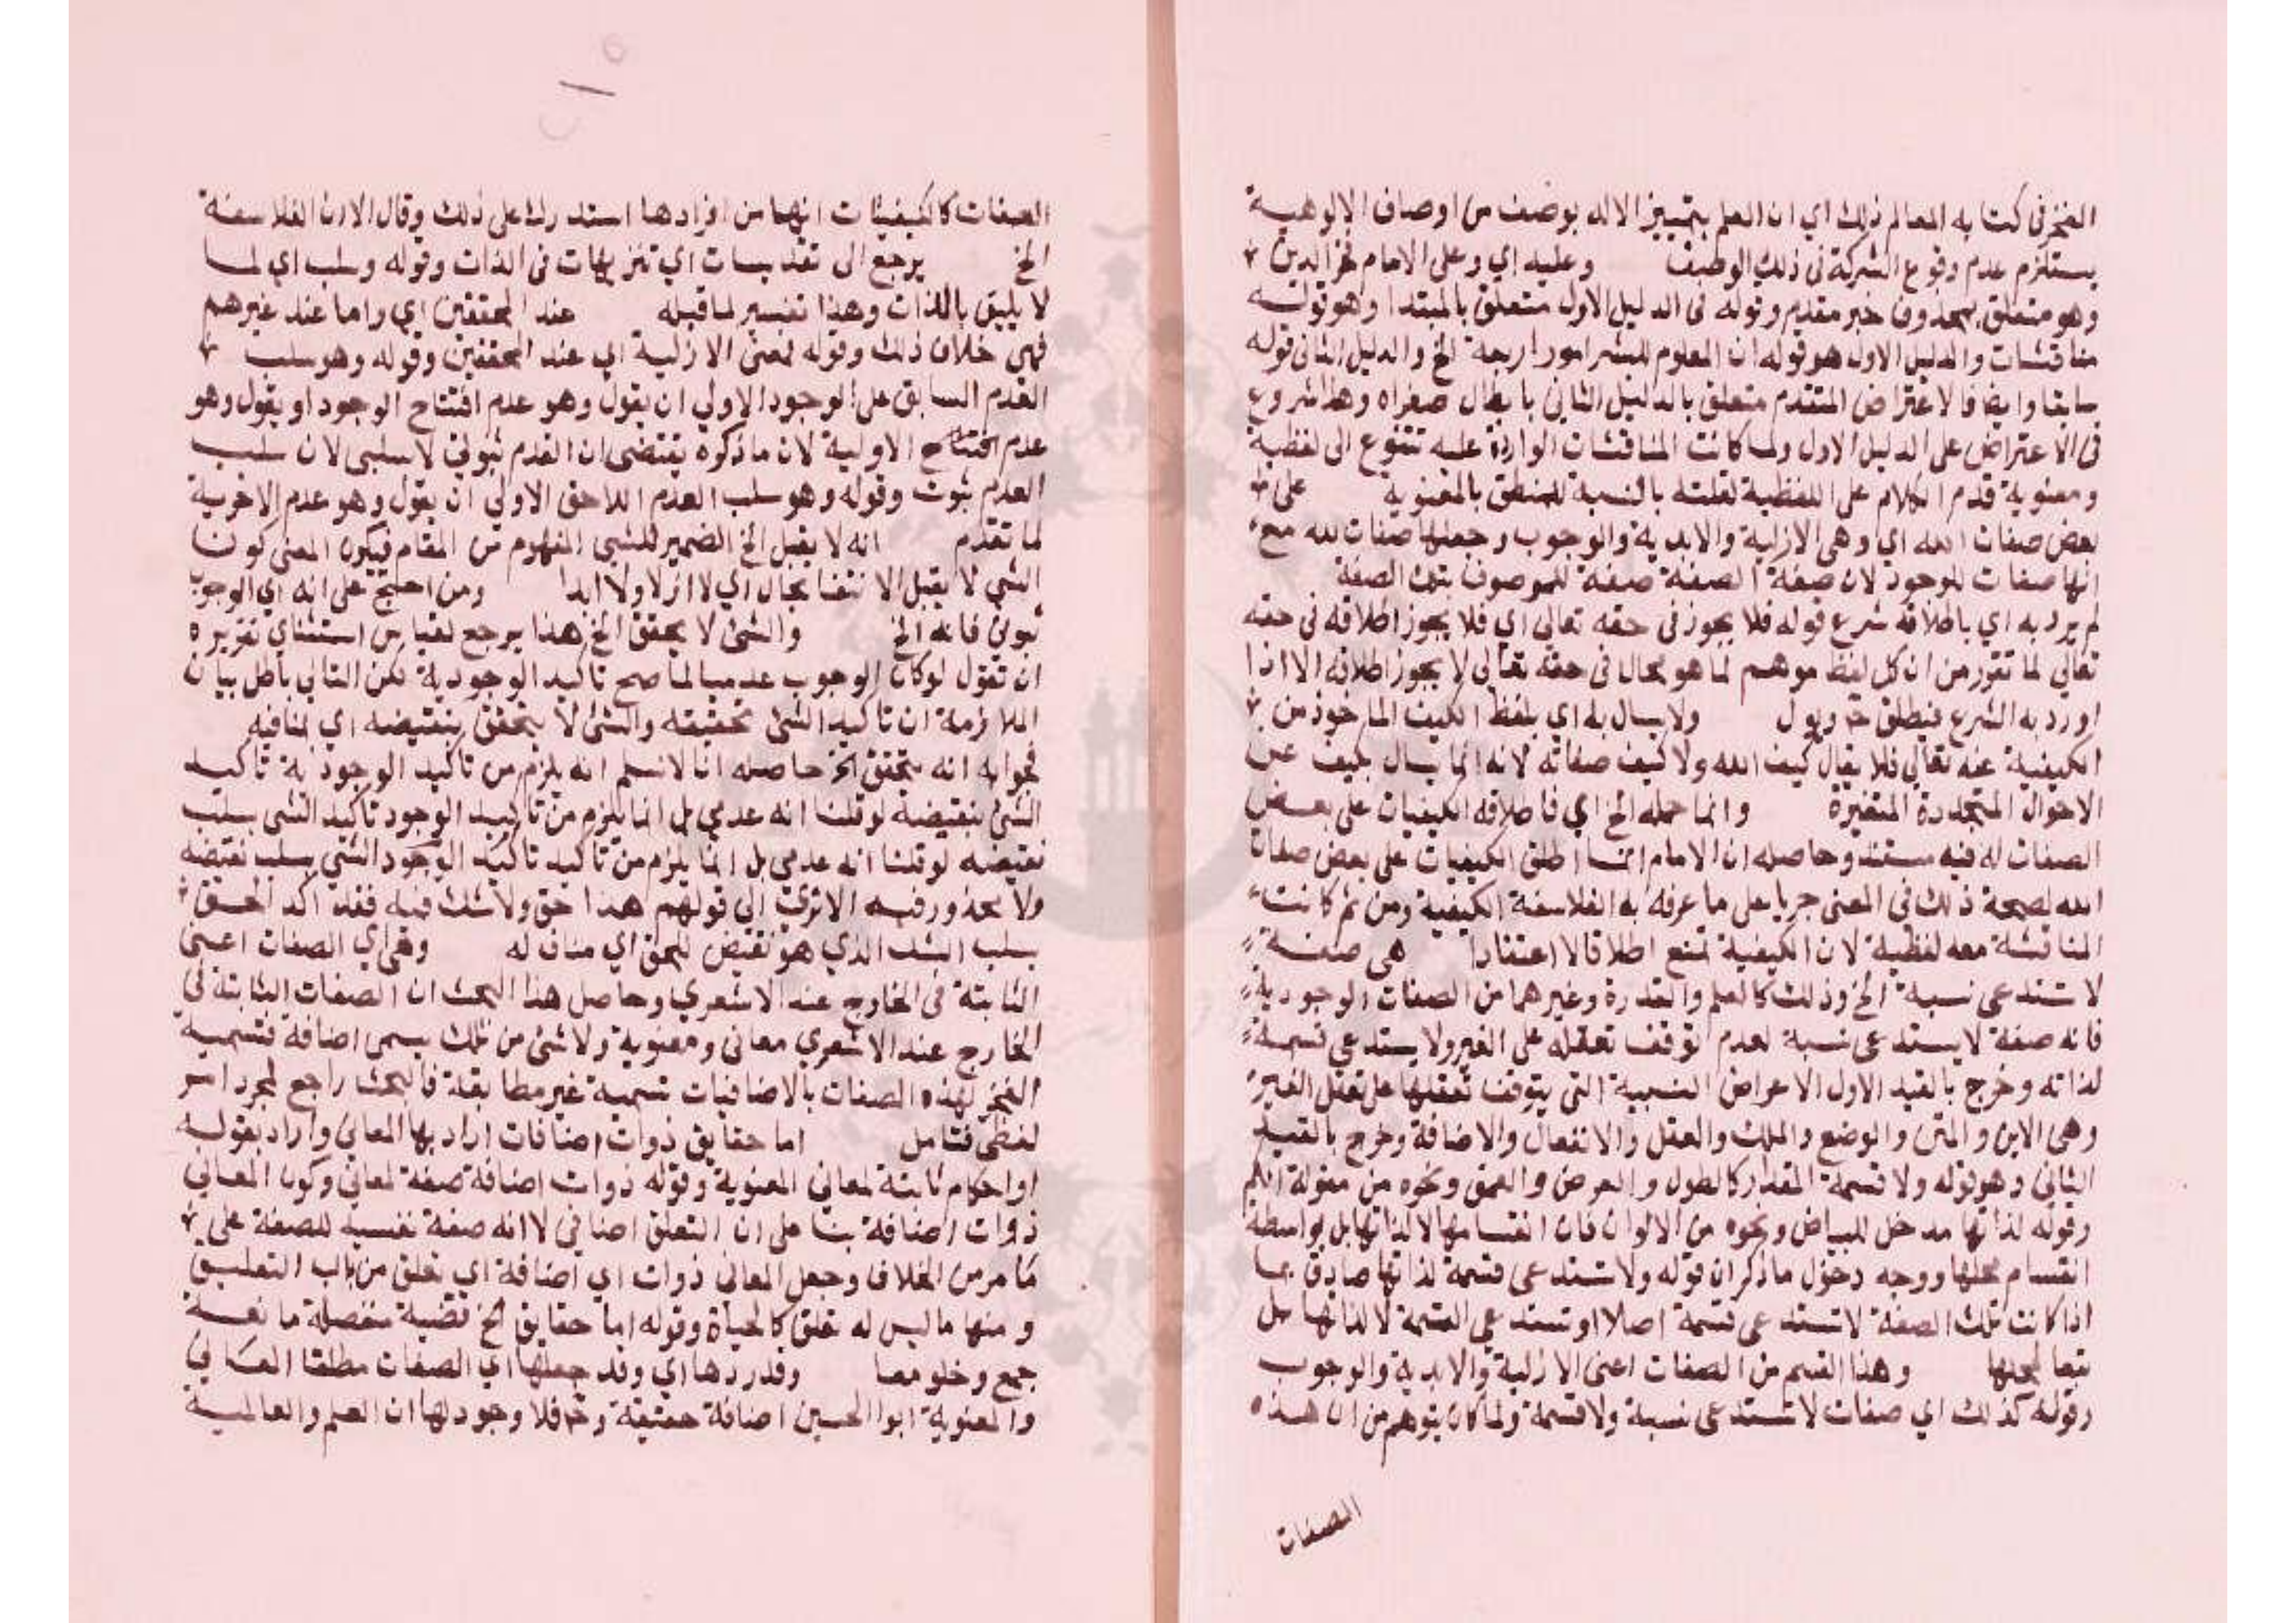 الفخر في كتابه المعالم ذلك اي ان العلم بتمييز الاله بوصف من اوصاف الالوهية
يستلزم عدم وقوع الشركة في ذلك الوصف وعليه اي وعلى الامام فخر الدين
وهو متعلق بمحذوف خبر مقدم وقوله في الدليل الاول متعلق بالمبتدا وهو قوله
مناقشات والدليل الاول هو قوله ان المعلوم للبشر امور اربعة الخ والدليل الثاني قوله
سابقا وايضا فالاعتراض المتقدم متعلق بالدليل الثاني بابطال صغراه وهذا شروع
في الاعتراض على الدليل الاول ولما كانت المناقشات الواردة عليه تتنوع الى لفظية
ومعنوية قدم الكلام على اللفظية لقلته بالنسبة للمتعلق بالمعنوية على
بعض صفات الله اي وهي الازلية والابدية والوجوب وجعلها صفات لله مع
انها صفات للوجود لان صفة الصفة صفة للموصوف بتلك الصفة
لم يرد به اي باطلاقه شرع قوله فلا يجوز في حقه تعالى اي فلا يجوز اطلاقه في حقه
تعالى لما تقرر من ان كل لفظ موهم لما هو محال في حقه تعالى لا يجوز اطلاقه الا اذا
اورد به الشرع فيطلق ح ويول ولا يسال به اي بلفظ الكيف الماخوذ من
الكيفية عنه تعالى فلا يقال كيف الله ولا كيف صفاته لانه انما يسال بكيف عن
الاحوال المتجددة المتغيرة وانما حمله الخ اي فاطلاقه الكيفيات على بعض
الصفات له فيه مستند وحاصله ان الامام انما اطلق الكيفيات على بعض صفات
الله لصحة ذلك في المعنى جريا على ما عرفه به الفلاسفة الكيفية ومن ثم كانت
المناقشة معه لفظية لان الكيفية تمنع اطلاقا لا اعتقادا هي صفة
لا تستدعي نسبة الخ وذلك كالعلم والقدرة وغيرهما من الصفات الوجودية
فانه صفة لا يستدعي نسبة لعدم توقف تعقله على الغير ولا يستدعي قسمة
لذاته وخرج بالقيد الاول الاعراض النسبية التي يتوقف تعقلها على تعقل الغير
وهي الاين والمتى والوضع والملك والفعل والانفعال والاضافة وخرج بالقيد
الثاني وهو قوله ولا قسمة المقدار كالطول والعرض والعمق ونحوه من مقولة الكم
وقوله لذاتها مدخل للبياض ونحوه من الالوان فان انقسامها لا لذاتها بل بواسطة
انقسام محلها ووجه دخول ما ذكر ان قوله ولا تستدعي قسمة لذاتها صادق بما
اذا كانت تلك الصفة لا تستدعي قسمة اصلا او تستدعي القسمة لا لذاتها بل
تبعا لمحلها وهذا القسم من الصفات اعني الازلية والابدية والوجوب
وقوله كذلك اي صفات لا تستدعي نسبة ولا قسمة ولما كان يتوهم من ان هذه
الصفات
الصفات كالكيفيات انهما من افرادها استدرك على ذلك وقال الا ان الفلاسفة
الخ يرجع الى تقديسات اي تنزيهات في الذات وقوله وسلب اي لما
لا يليق بالذات وهذا تفسير لما قبله عند المحققين اي واما عند غيرهم
فهي خلاف ذلك وقوله لمعنى الازلية اي عند المحققين وقوله وهو سلب
العدم السابق على الوجود الاولى ان يقول وهو عدم افتتاح الوجود او يقول وهو
عدم افتتاح الاولية لان ما ذكره يقتضي ان القدم ثبوتي لا سلبي لان سلب
العدم ثبوت وقوله وهو سلب العدم اللاحق الاولى ان يقول وهو عدم الاخرية
لما تقدم انه لا يقبل الخ الضمير للشي المفهوم من المقام فيكون المعنى كون
الشي لا يقبل الانتفا بحال اي لا ازلا ولا ابدا ومن احتج على انه اي الوجوب
ثبوتي فانه الخ والشئ لا يحقق الخ هذا يرجع لقياس استثناي تقريره
ان تقول لو كان الوجوب عدميا لما صح تاكيد الوجود به لكن التالي باطل بيان
الملازمة ان تاكيد الشئ تحقيقه والشئ لا يتحقق بنقيضه اي لمنافيه
فجوابه انه يتحقق الخ حاصله انا لا نسلم انه يلزم من تاكيد الوجود به تاكيد
الشئ بنقيضه لو قلنا انه عدمي بل انما يلزم من تاكيد الوجود تاكيد الشي بسلب
نقيضه لو قلنا انه عدمي بل انما يلزم من تاكيد تاكيد الوجود الشي بسلب نقيضه
ولا محذور فيه الا ترى الى قولهم هذا حق ولا شك فيه فقد اكد الحق
بسلب الشك الذي هو نقيض للحق اي مناف له وهي اي الصفات اعني
الثابتة في الخارج عند الاشعري وحاصل هذا البحث ان الصفات الثابتة في
الخارج عند الاشعري معاني ومعنوية ولا شئ من تلك يسمى اضافة فتسمية
الفخر لهذه الصفات بالاضافيات تسمية غير مطابقة فالبحث راجع لمجرد امر
لفظي فتامل اما حقايق ذوات اضافات اراد بها المعاني واراد بقوله
او احكام ثابتة لمعاني المعنوية وقوله ذوات اضافة صفة لمعاني وكون المعاني
ذوات اضافة بنا على ان التعلق اضافي لا انه صفة نفسية للصفة على
ما مر من الخلاف وجعل المعاني ذوات اي اضافة اي تعلق من باب التغليب
ومنها ما ليس له تعلق كالحياة وقوله اما حقايق الخ قضية منفصلة مانعة
جمع وخلو معا وقد ردها اي وقد جعلها اي الصفات مطلقا المعاني
والمعنوية ابو الحسين اضافة حقيقة وح فلا وجود لها ان العلم والعالمية